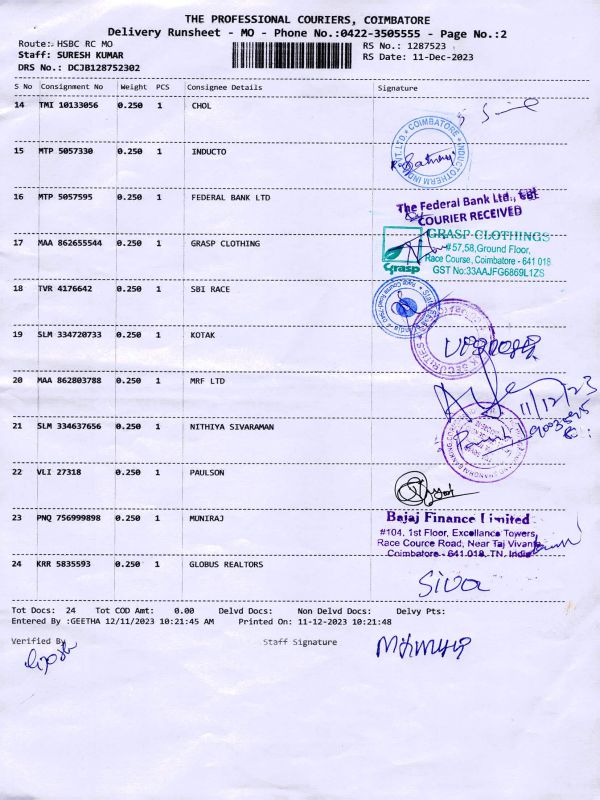 THE PROFESSIONAL COURIERS, COIMBATORE
Delivery Runsheet - MO - Phone No.:0422-3505555 - Page No.:2
Route: HSBC RC MO
RS No.: 1287523
Staff: SURESH KUMAR
RS Date: 11-Dec-2023
DRS No.: DCJB128752302
S No Consignment No Weight PCS Consignee Details Signature
14 TMI 10133056 0.250 1 CHOL
15 MTP 5057330 0.250 1 INDUCTO
COIMBATORE
16 MTP 5057595 0.250 1 FEDERAL BANK LTD
The Federal Bank Ltd., CBE
COURIER RECEIVED
17 MAA 862655544 0.250 1 GRASP CLOTHING
GRASP CLOTHINGS
#57,58,Ground Floor,
Race Course, Coimbatore - 641 018
Grasp GST No:33AAJFG6869L1ZS
18 TVR 4176642 0.250 1 SBI RACE
19 SLM 334720733 0.250 1 KOTAK
SECURITIES
20 MAA 862803788 0.250 1 MRF LTD
11/12/23
21 SLM 334637656 0.250 1 NITHIYA SIVARAMAN
22 VLI 27318 0.250 1 PAULSON
23 PNQ 756999898 0.250 1 MUNIRAJ
Bajaj Finance Limited
#104, 1st Floor, Excellance Towers,
Race Cource Road, Near Taj Vivanta
Coimbatore - 641 018, TN, India
24 KRR 5835593 0.250 1 GLOBUS REALTORS
Siva
Tot Docs: 24 Tot COD Amt: 0.00 Delvd Docs: Non Delvd Docs: Delvy Pts:
Entered By :GEETHA 12/11/2023 10:21:45 AM Printed On: 11-12-2023 10:21:48
Verified By Staff Signature